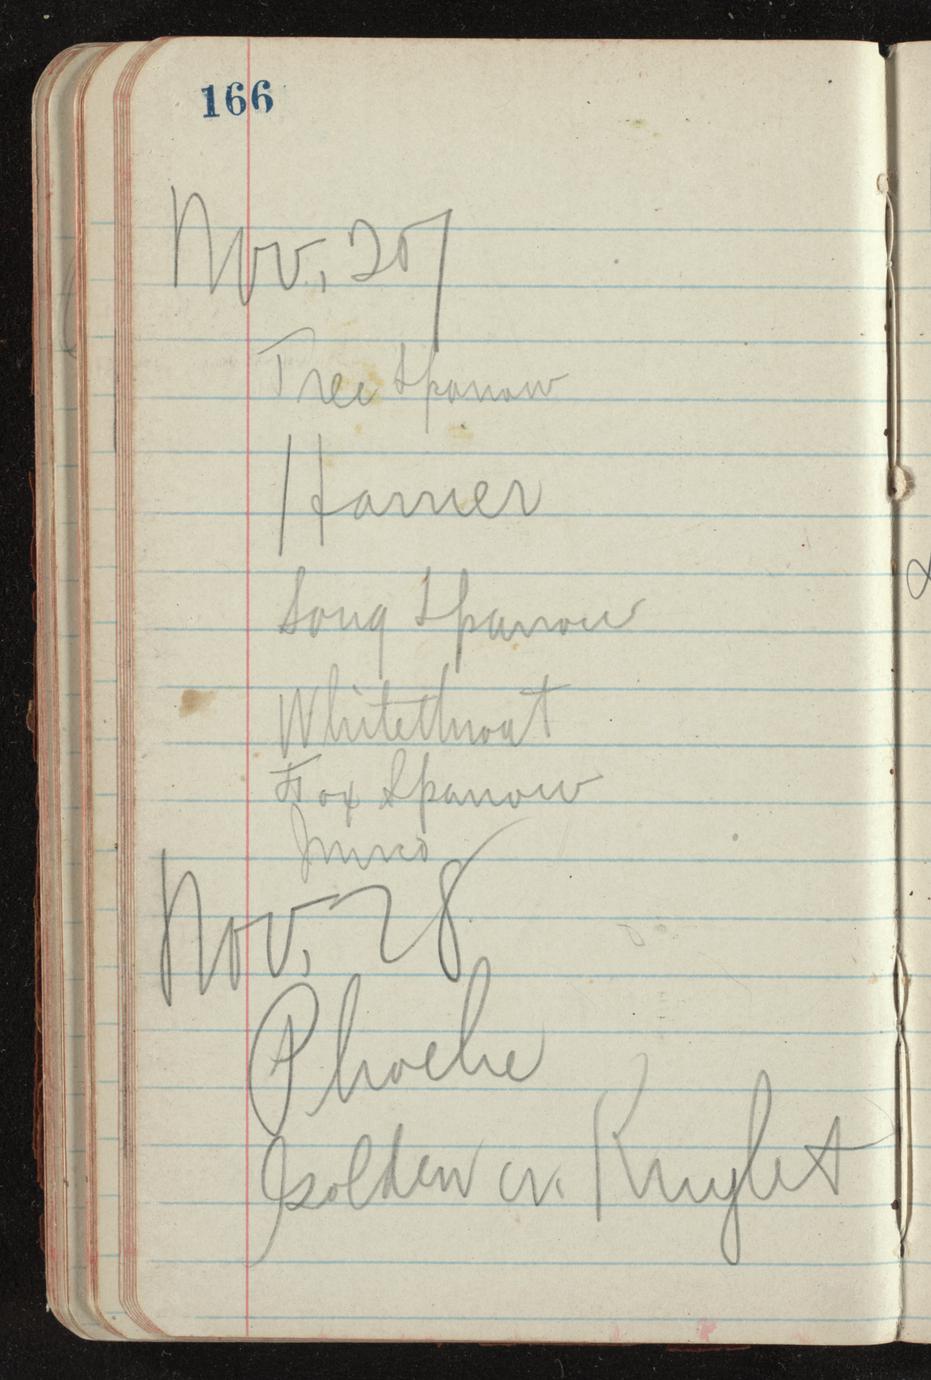 166
Nov. 27
Tree Sparrow
Harrier
Song Sparrow
Whitethroat
Fox Sparrow
Junco
Nov. 28
Phoebe
Golden cr. Kinglet